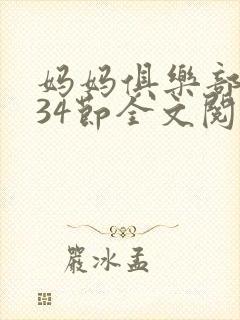 妈妈俱樂部
34節全文閱
嚴冰孟